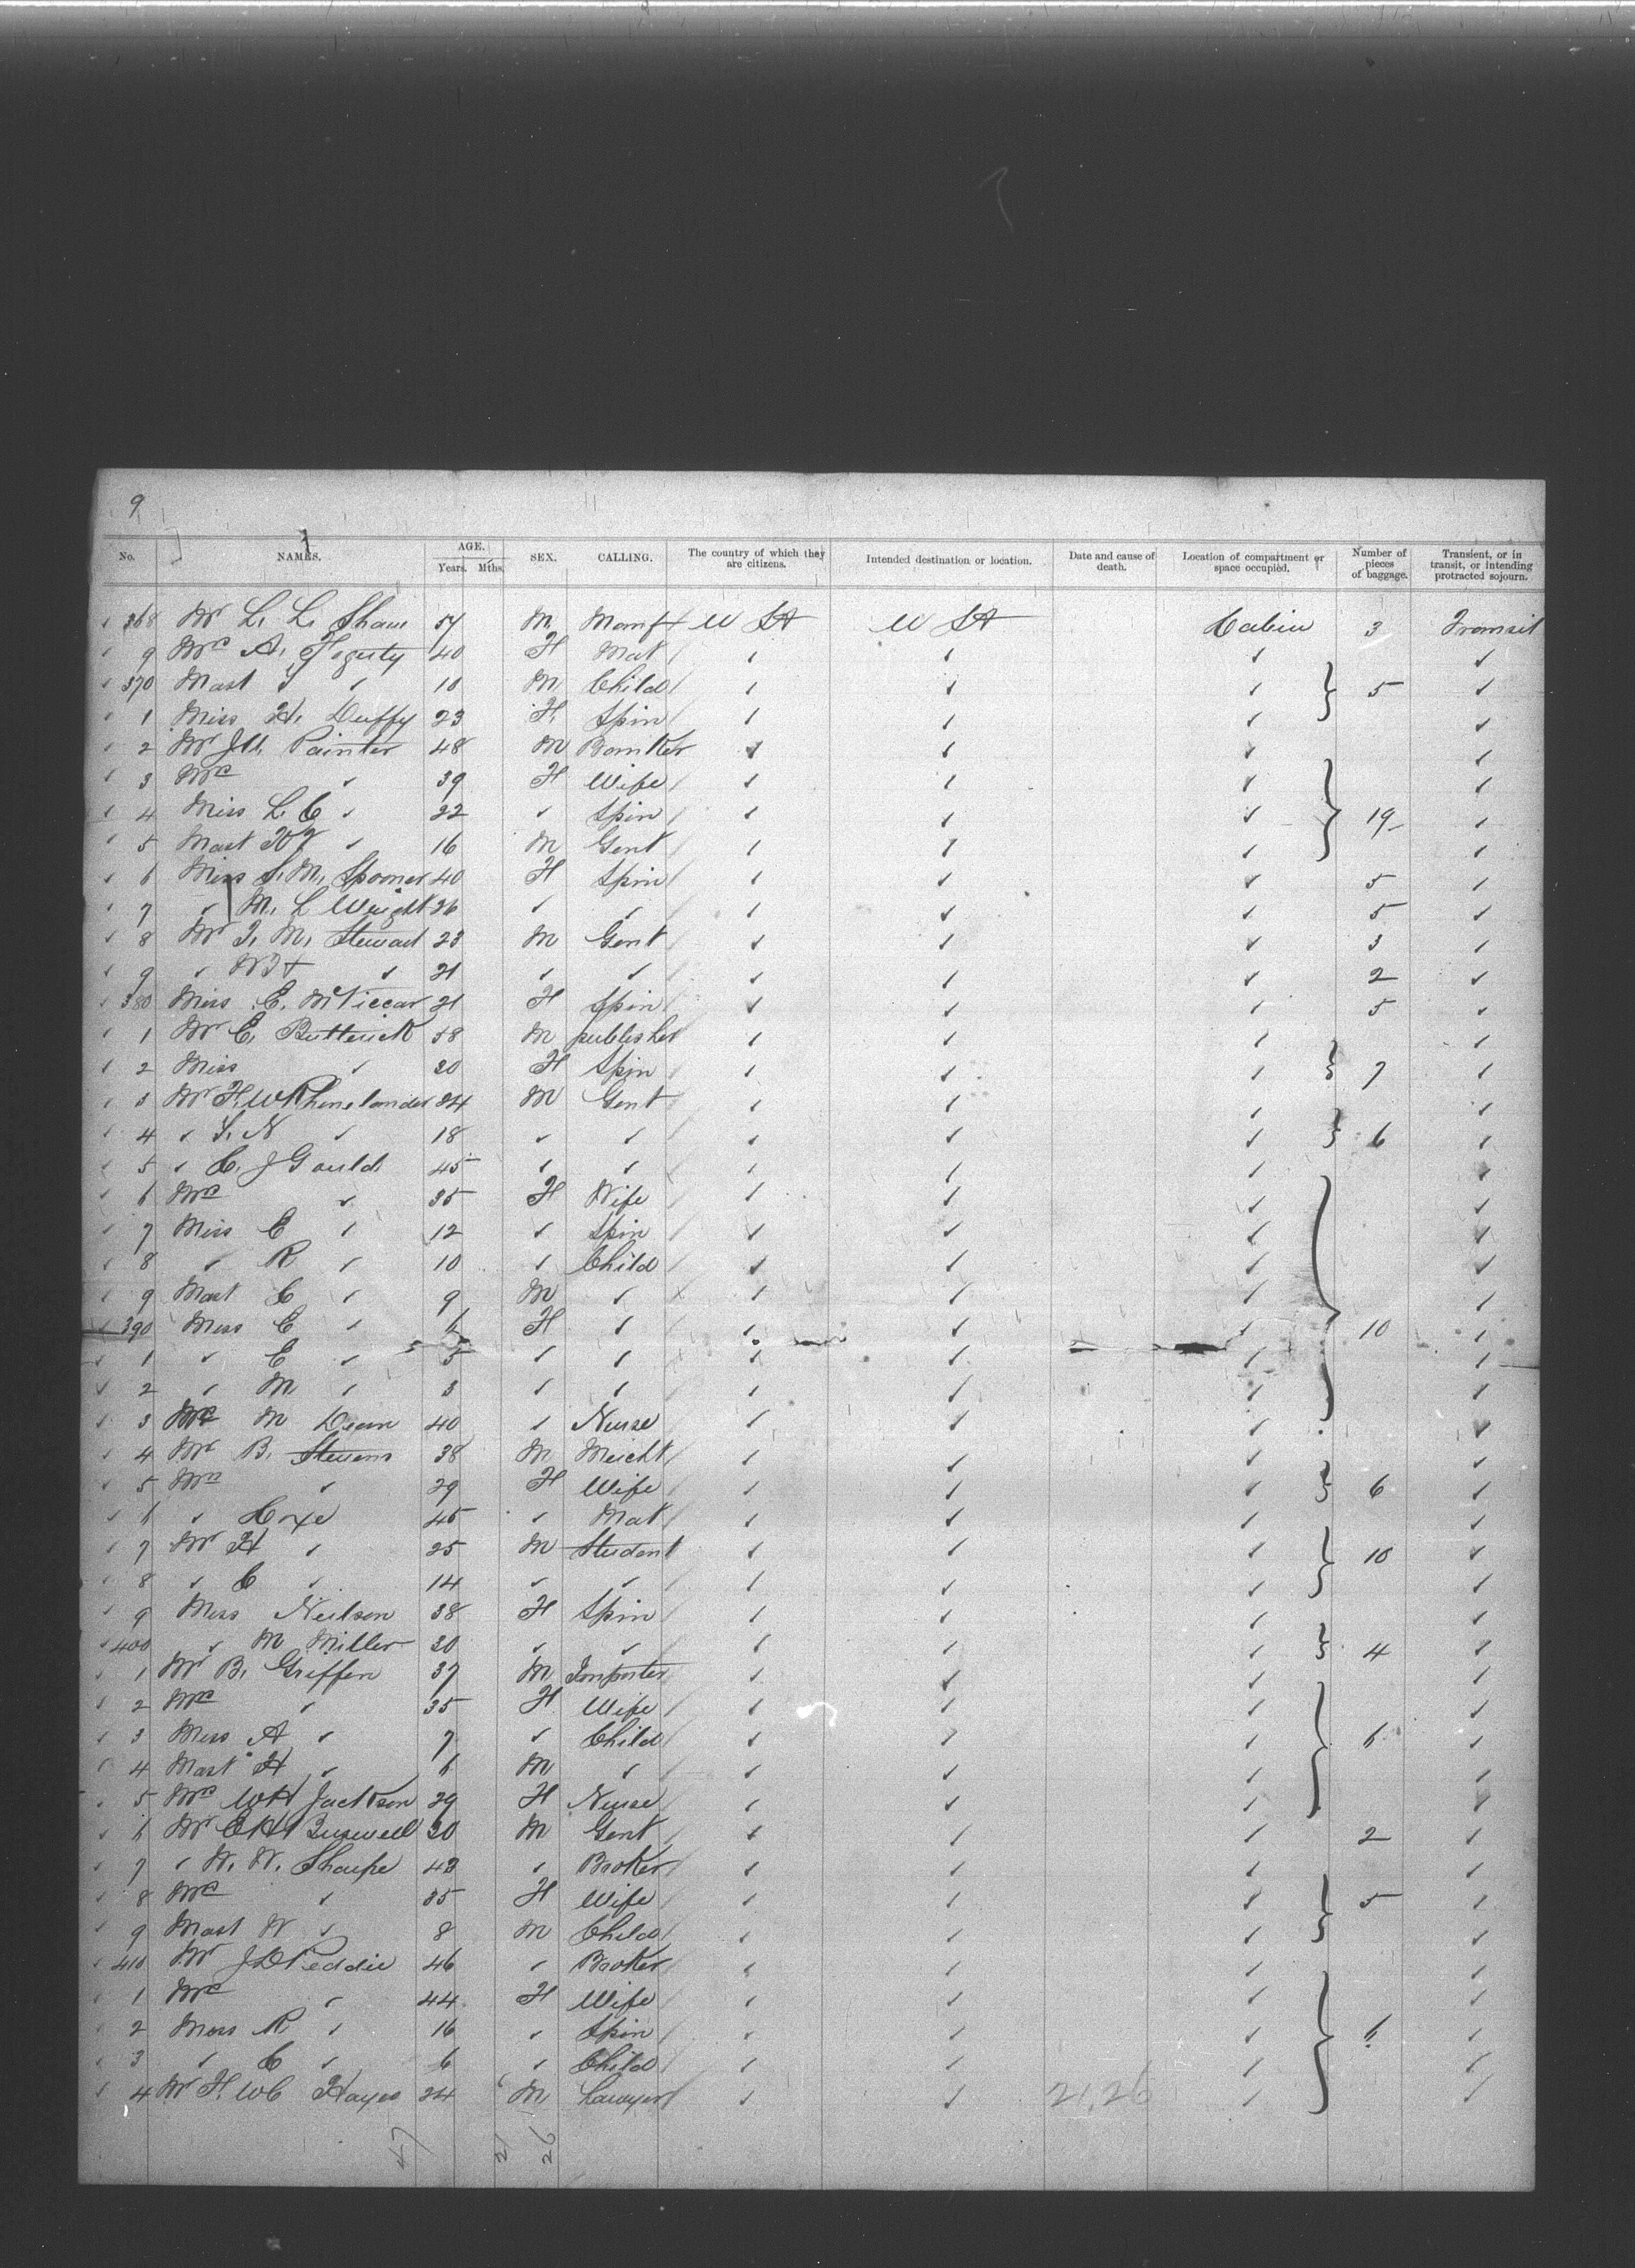 9
No. NAMES. AGE. Years. Mths. SEX. CALLING. The country of which they are citizens. Intended destination or location. Date and cause of death. Location of compartment or space occupied. Number of pieces of baggage. Transient, or in transit, or intending protracted sojourn.
368 Mr L. L. Shaw 54 M Manf U St U St Cabin 3 Transit
9 Mrs A. Fogerty 40 F Mat
370 Mast 10 M Child 5
1 Miss H. Duffy 23 F Spin
2 Mr J.V. Painter 48 M Banker
3 Mrs 39 F Wife
4 Miss L. C 22 Spin 19
5 Mast 16 M Gent
6 Miss S. M. Spooner 40 F Spin 5
7 M. L Wright 26 5
8 Mr J. M. Stewart 23 M Gent 3
9 21 2
380 Miss E. McViccar 21 F Spin 5
1 Mr E. Butterick 58 M publisher
2 Miss 20 F Spin 7
3 Mr F. W Rhinelander 24 M Gent
4 18 6
5 C. J Gould 45
6 Mrs 35 F Wife
7 Miss E 12 Spin
8 R 10 Child
9 Mast C 9 M
390 Miss C 6 F 10
1 E 5
2 M 3
3 Mrs M Dean 40 Nurse
4 Mr B. Stevens 38 M Mercht
5 Mrs 29 F Wife 6
6 Coxe 45 Mat
7 Mr H 25 M Student 10
8 C 14
9 Miss Neilson 38 F Spin
400 M Miller 30 4
1 Mr B. Griffen 37 M Importer
2 Mrs 35 F Wife
3 Miss A 7 Child 6
4 Mast H 6 M
5 Mrs WH Jackson 29 F Nurse
6 Mr E H Buswell 30 M Gent 2
7 W. W. Sharpe 43 Broker
8 Mrs 35 F Wife 5
9 Mast W 8 M Child
410 Mr J D Peddie 46 Broker
1 Mrs 44 F Wife
2 Miss R 16 Spin 6
3 C 6 Child
4 Mr F. W C Hayes 24 M Lawyer 21, 26
47 21 26